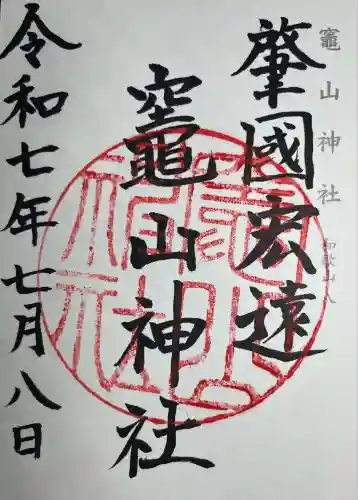 竈山神社
肇國宏遠
竈山神社
令和七年七月八日